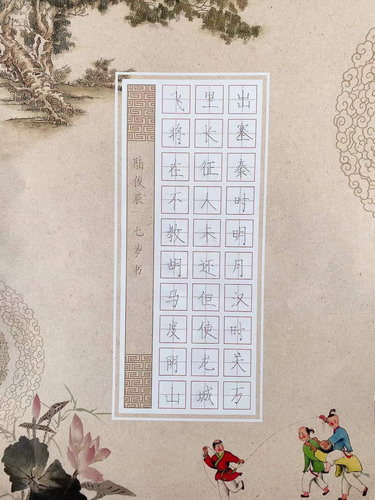 出塞秦时明月汉时关万
里长征人未还但使龙城
飞将在不教胡马度阴山
陆俊辰 七岁书